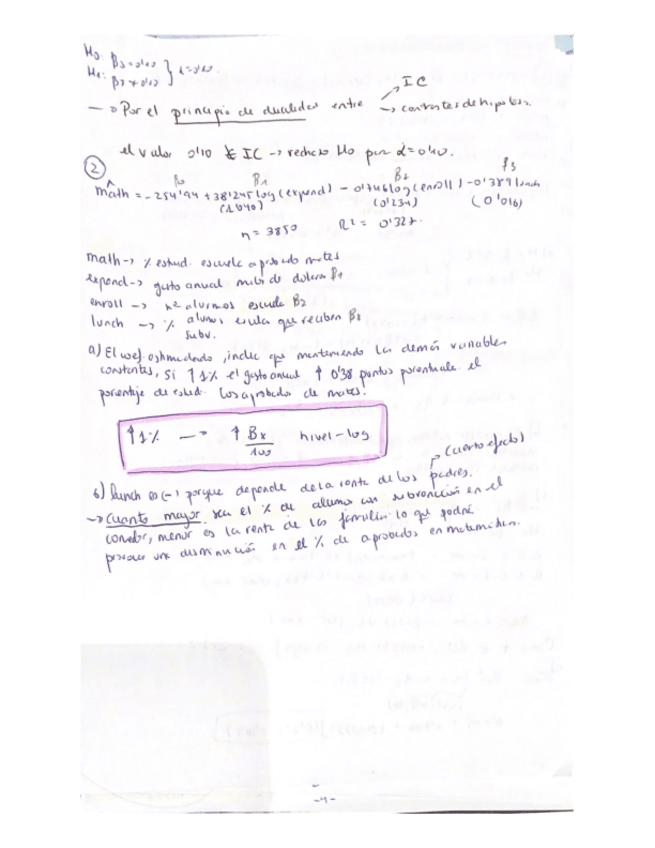 H0: β3 = 0'10
H1: β3 ≠ 0'10 } α = 0'10.
IC
→ Por el principio de dualidad entre → contrastes de hipótesis.
el valor 0'10 ∉ IC → rechazo H0 para α = 0'10.
②
β0 β1 β2 β3
math = -254'94 + 38'245 log (expend) - 0'746 log (enroll) - 0'389 lunch
(0'234) (0'016)
n = 3850 R² = 0'327.
math → % estud. escuela aprobado mates
expend → gasto anual miles de dolares β1
enroll → nº alumnos escuela β2
lunch → % alumnos escuela que reciben β3
subv.
a) El coef. estimado, indica que manteniendo las demás variables
constantes, si ↑ 1% el gasto anual ↑ 0'38 puntos porcentuales el
porcentaje de estud. aprobado de mates.
↑1% → ↑ βx/100 nivel-log
(cierto efecto)
b) lunch es (-) porque depende de la renta de los padres.
→ Cuanto mayor sea el % de alumnos con subvención en el
comedor, menor es la renta de las familias lo que podrá
provocar una disminución en el % de aprobados en matemáticas.
-4-